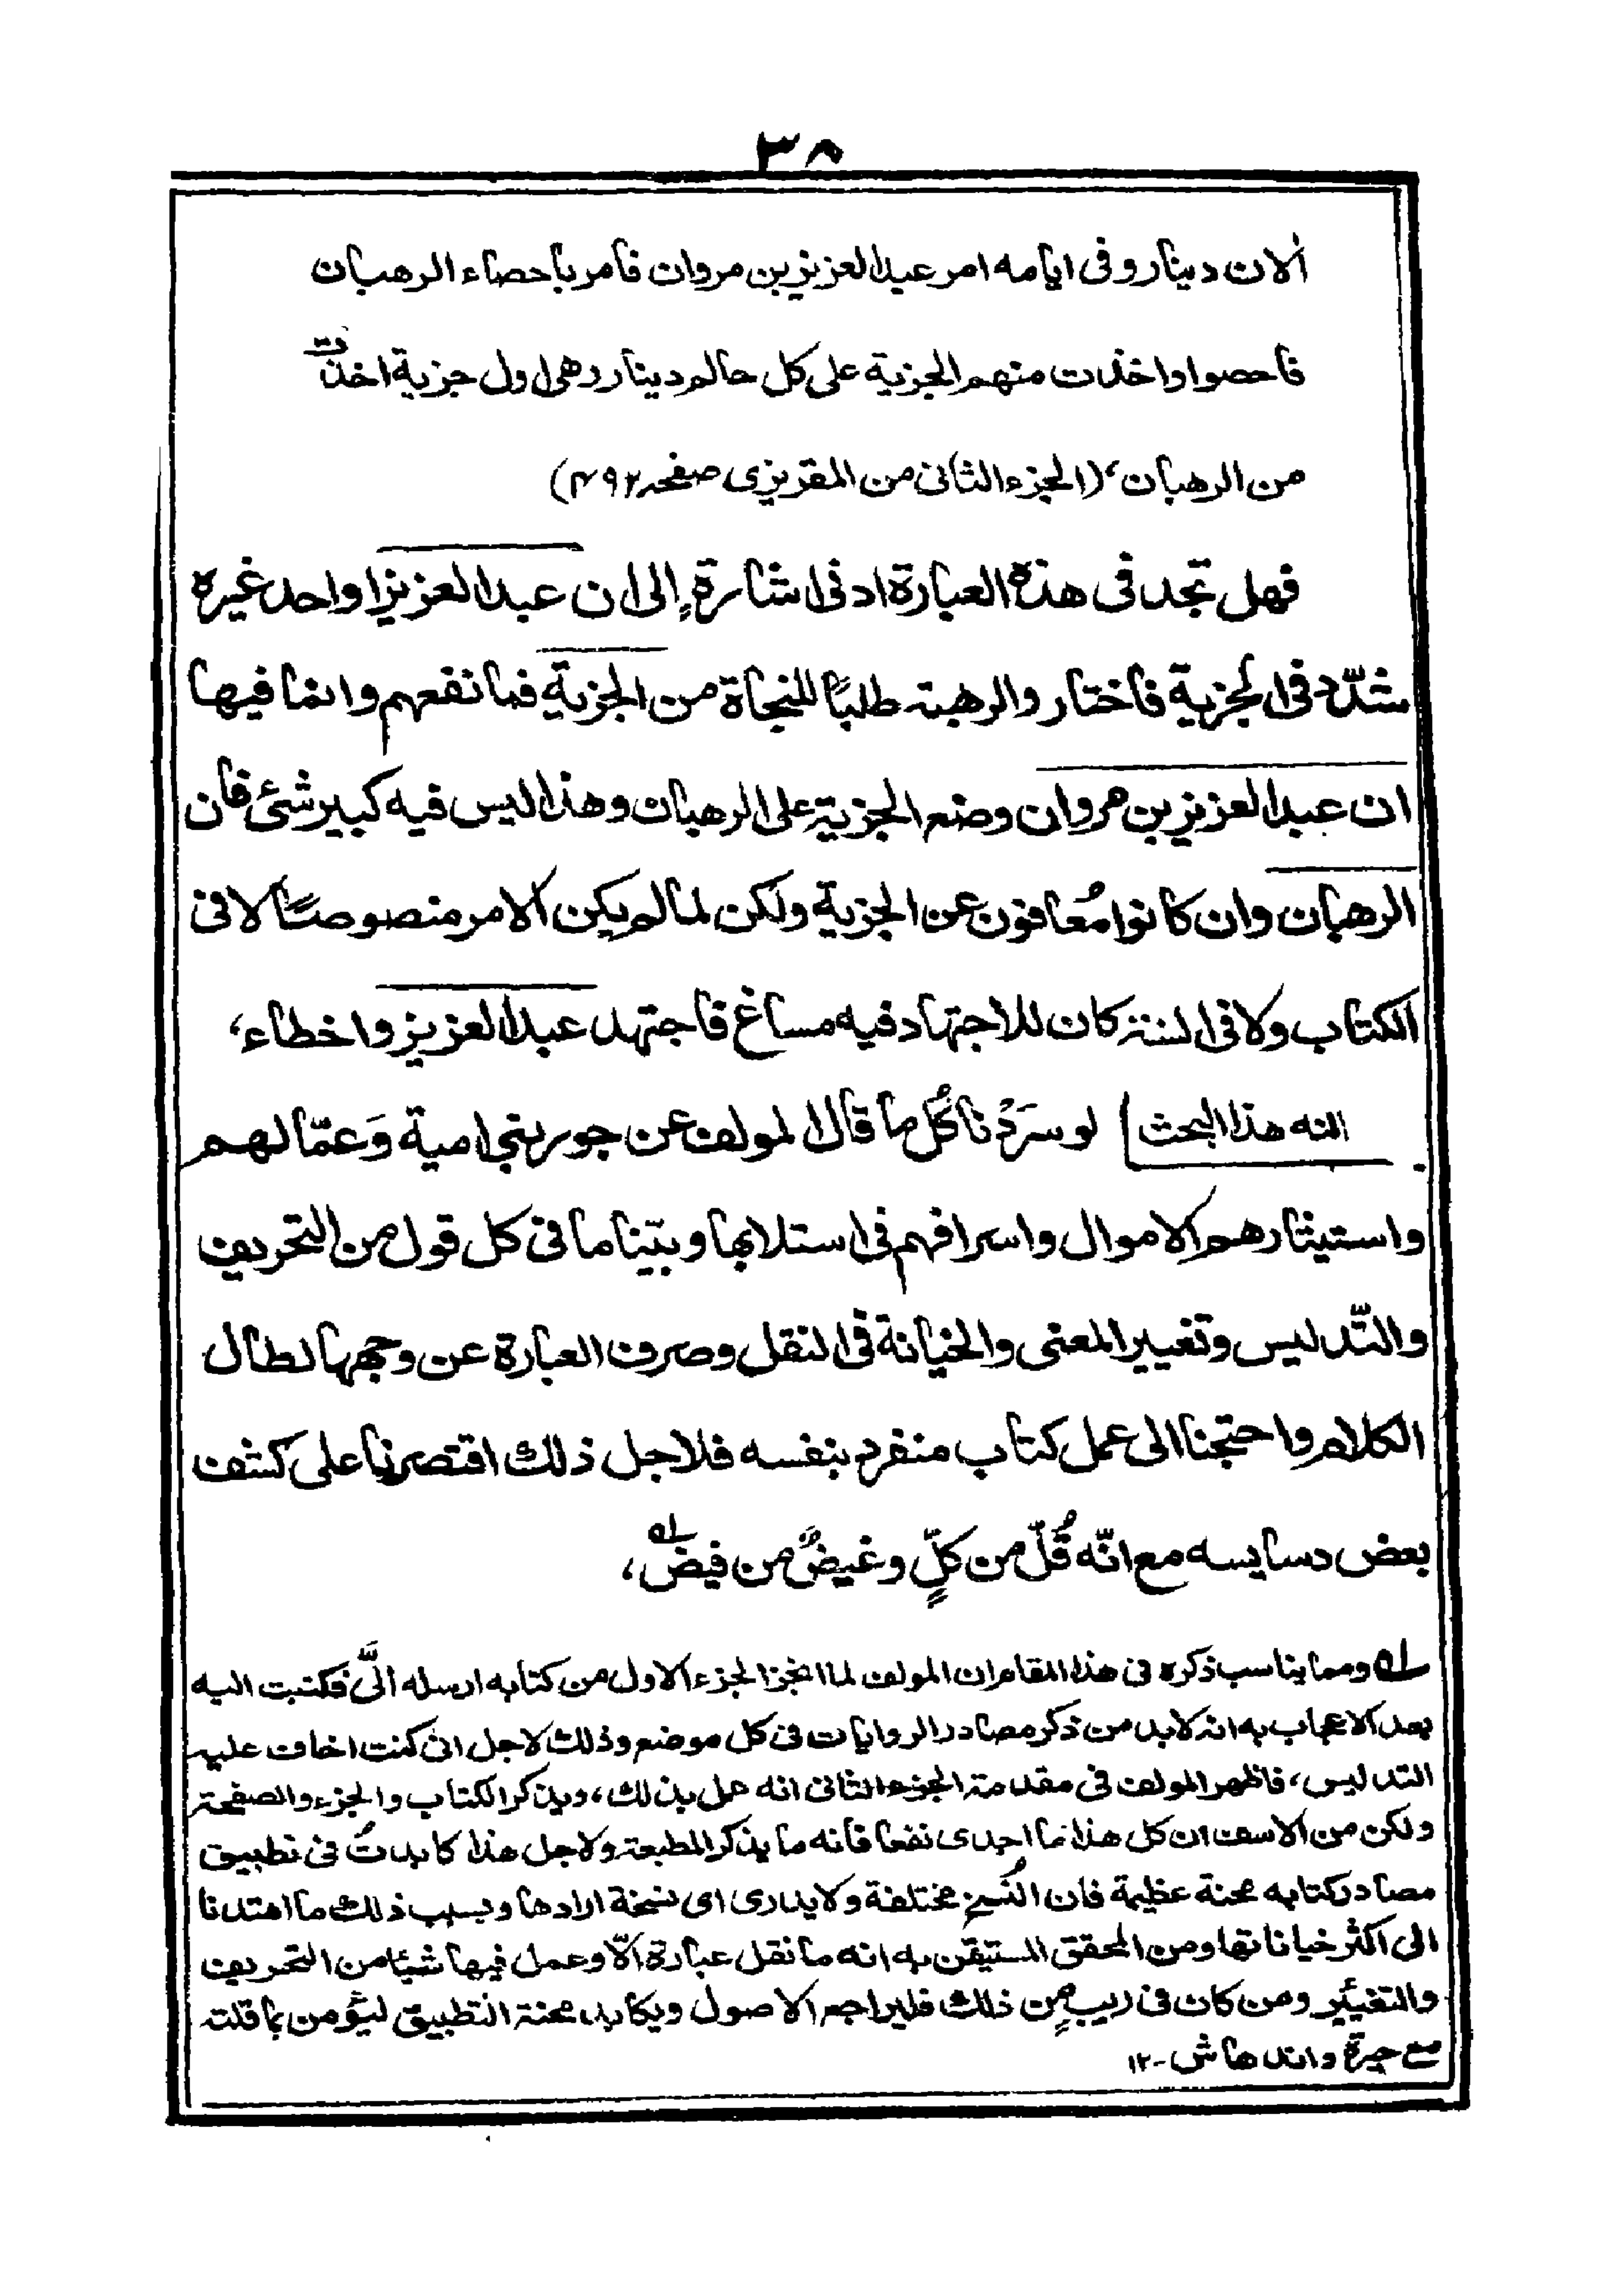 ٣٨
الاف دينار وفى ايامه امر عبدالعزيز بن مروان فامر باحصاء الرهبان
فاحصوا واخذت منهم الجزية على كل حالم دينار وهى اول جزية اخذت
من الرهبان، (الجزء الثانى من المقريزى صفحه ٤٩٢)
فهل تجد فى هذه العبارة ادنى اشارةٍ الى ان عبدالعزيز او احد غيره
شدّد فى الجزية فاختار والرهبنة طلبًا للنجاة من الجزية فما نفعهم وانما فيها
ان عبدالعزيز بن مروان وضع الجزية على الرهبان وهذا ليس فيه كبير شئ فان
الرهبان وان كانوا مُعافون عن الجزية ولكن لما لم يكن الامر منصوصًا لا فى
الكتاب ولا فى السنة كان للاجتهاد فيه مساغ فاجتهد عبدالعزيز واخطاء،
تتمه هذا البحث) لو سَرَدْنا كُل ما قال المولف عن جور بنى امية وَعمّالهم
واستيثارهم الاموال واسرافهم فى استلابها وبيّنا ما فى كل قول من التحريف
والتّدليس وتغيير المعنى والخيانة فى النقل وصرف العبارة عن وجهها لطال
الكلام واحتجنا الى عمل كتاب منفرد بنفسه فلاجل ذلك اقتصرنا على كشف
بعض دسايسه مع انّه قُلّ من كلٍّ وغيضٌ من فيض له،
له ومما يناسب ذكره فى هذا المقام ان المولف لما انجز الجزء الاول من كتابه ارسله الىَّ فكتبت اليه
بعد الاعجاب به انه لابد من ذكر مصادر الروايات فى كل موضع وذلك لاجل انى كنت اخاف عليه
التدليس، فاظهر المولف فى مقدمة الجزء الثانى انه عمل بذلك، ويذكر الكتاب والجزء والصفحة
ولكن من الاسف ان كل هذا ما اجدى نفعا فانه ما يذكر المطبعة ولاجل هذا كابدتُ فى تطبيق
مصادر كتابه محنة عظيمة فان النُسخ مختلفة ولا يدرى اى نسخة ارادها وبسبب ذلك ما اهتدنا
الى اكثر خياناتها ومن المحقق المستيقن به انه ما نقل عبارة الّا وعمل فيها شيئا من التحريف
والتغيئير ومن كان فى ريبٍ من ذلك فليراجع الاصول ويكابد محنة التطبيق ليؤمن بما قلته
مع حيرة واندهاش ١٢-